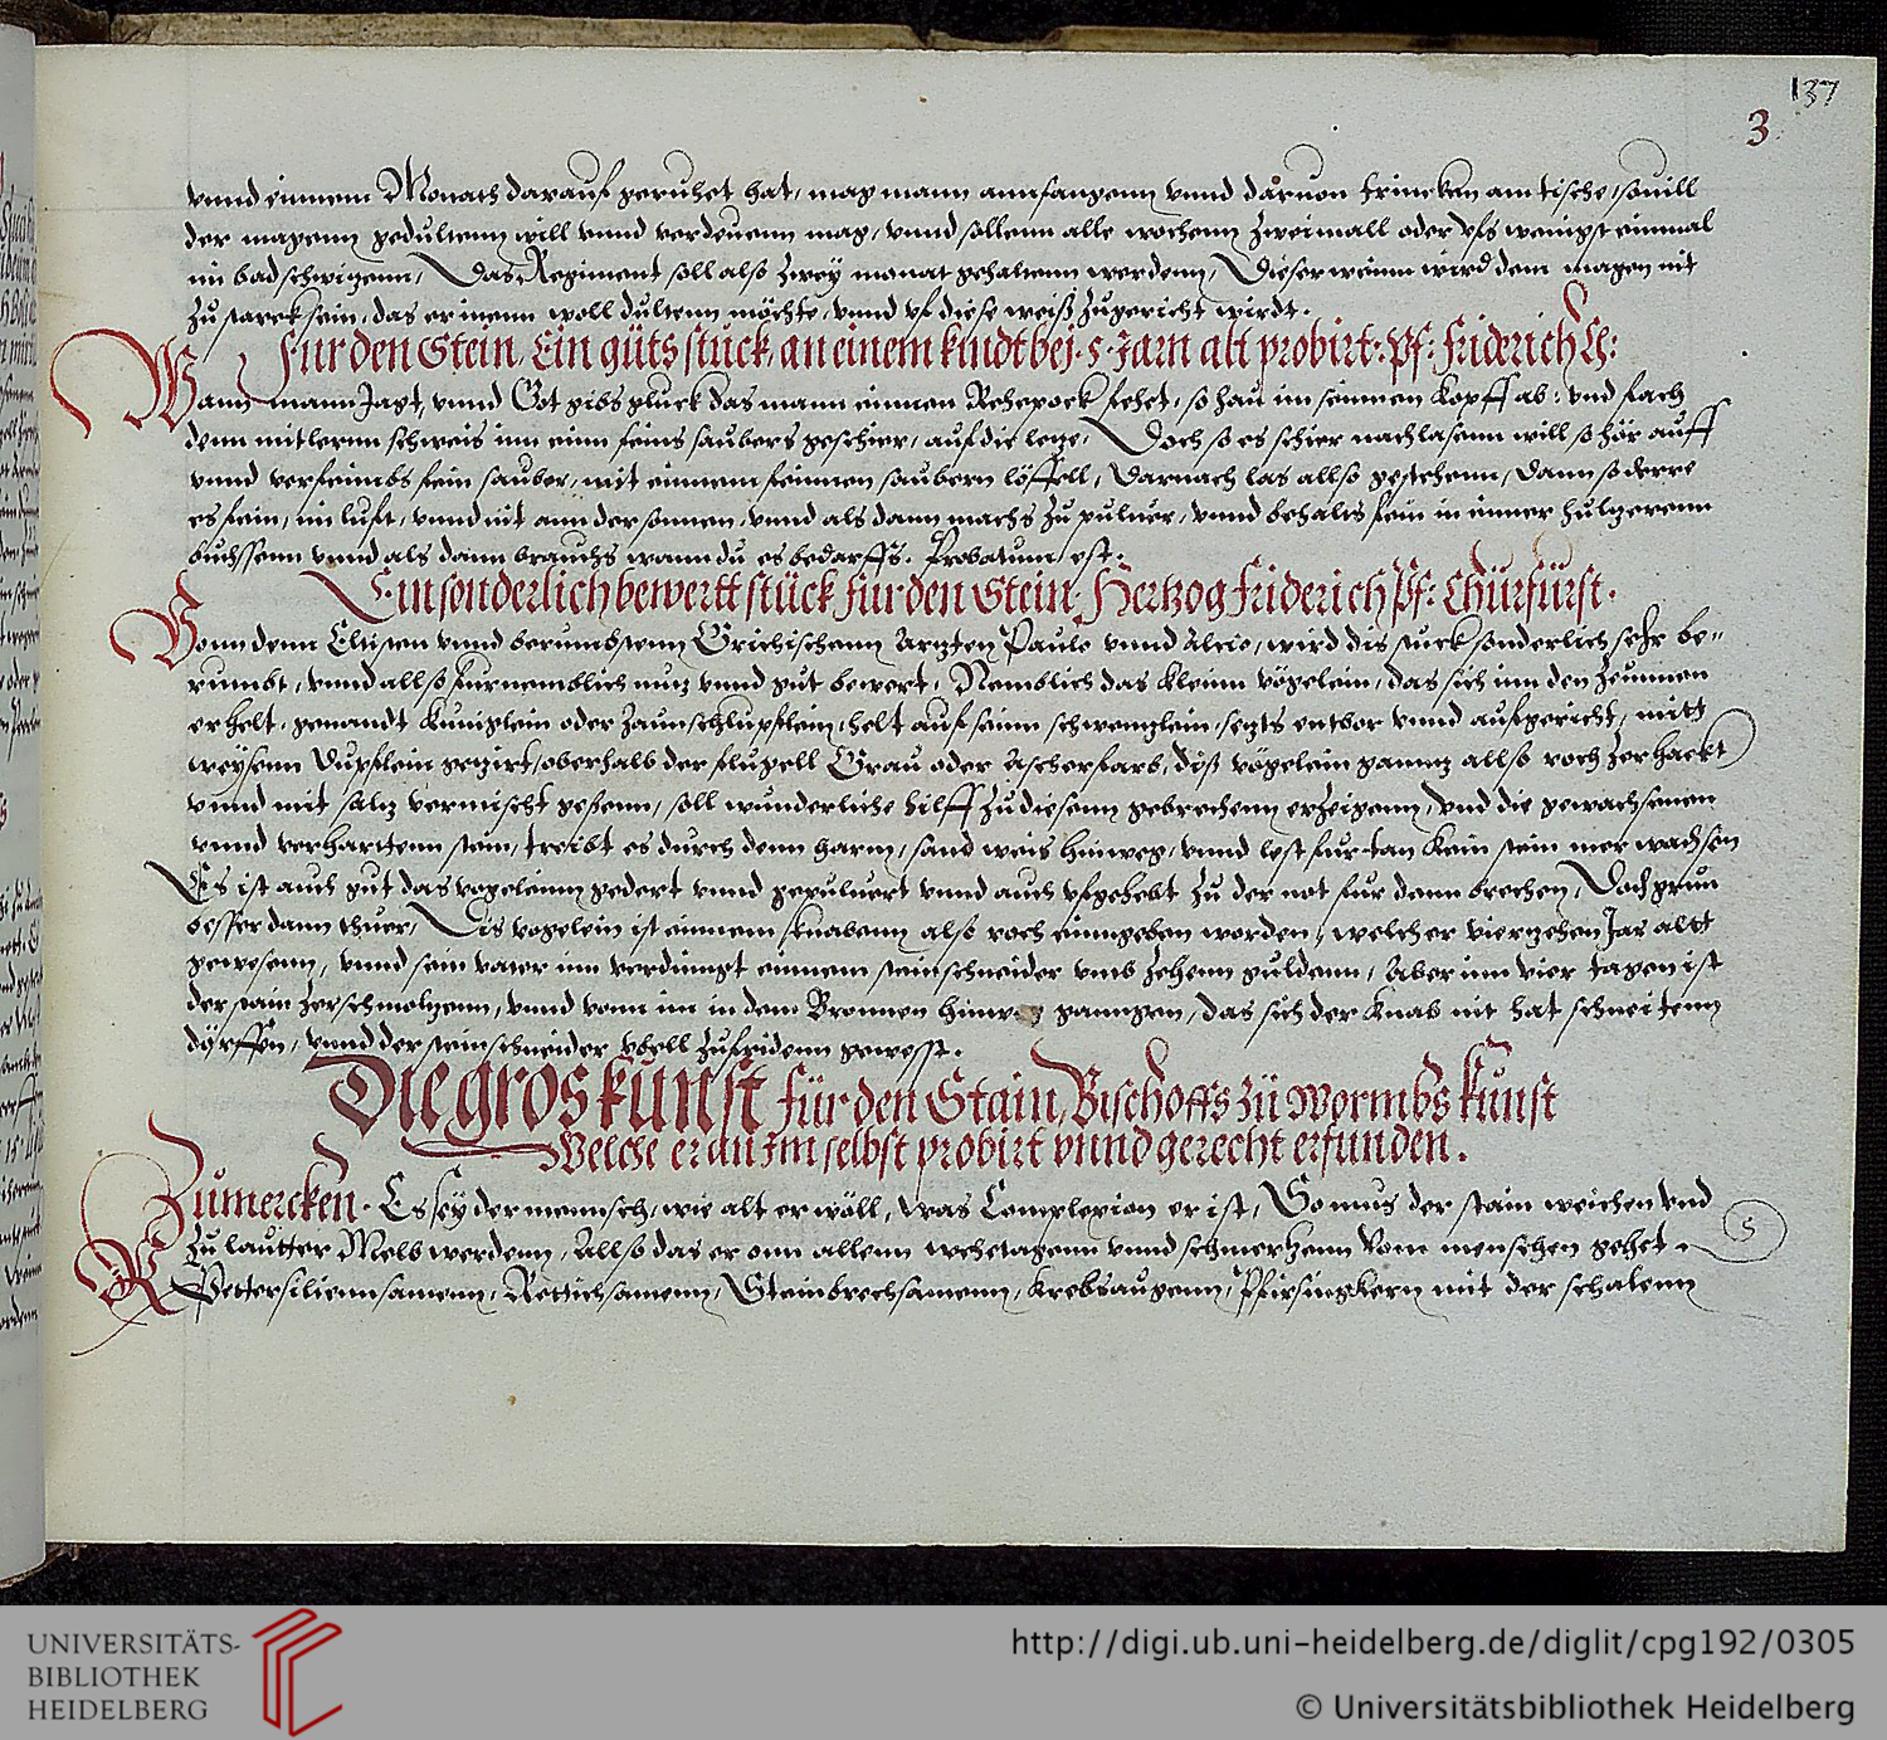 137
3
vnnd einnem Monach darauf geruhet hat, mag mann annfangenn vnnd daruon trincken am tische, souill
der magenn gedultenn will vnnd verdeuenn mag, vnnd sollenn alle wochenn zweimall oder vfs wenigst einmal
im bad schwizenn, Das Regiment soll also zwey monat gehaltenn werdenn, Dieser weinn wird dem magen nit
zu starck sein, das er inenn woll dultenn möchte, vnnd vf diese weiß zugericht wirdt.
Fur den Stein, Ein güts stuck, an einem kindt bej .5. Jarn alt probirt: Pf: Friderich Ch:
Wann mann Jagt, vnnd Got gibs gluck das mann einnen Rehepock fehet, so hau im seinnen Kopff ab: vnd fach
denn mitlernn schweis inn einn feins saubers geschier, auf die leze, Doch so es schier nachlasenn will so hör auff
vnnd verfeimbs fein sauber, mit einnem feinnen saubern löffell, Darnach las allso gestehenn, Dann so derre
es fein, im luft, vnnd nit ann der sonnen, vnnd als dann machs zu puluer, vnnd behalts fein in einner hulzerenn
buchssenn vnnd als dann brauchs wann du es bedarffs. Probatum est.
Ein sonderlich bewertt stück für den Stein, Hertzog Friderich Pf: Chürfürst.
Vonn denn Elttsten vnnd berumbstenn Grichischenn Arzten Paulo vnnd Aleio, wird dis stuck sonderlich sehr be-
rumbt, vnnd allso furnemblich nuz vnnd gut bewert, Nemblich das kleinn vögelein, das sich inn den Zeunnen
erhelt, genandt Kuniglein oder Zaunschlupflein, helt auf seinn schwenzlein, sezts entbor vnnd aufgericht, mitt
weysenn Dupflein gezirt, oberhalb der flugell Grau oder Ascherfarb, diß vögelein gannz allso roch zerhackt
vnnd mit salz vermischt gesenn, soll wunderliche hilff zu diesenn gebrechenn erzeigenn, vnd die gewachsenen
vnnd verharttenn stein, treibt es durch denn harm, sand weis hinweg, vnnd lest furtan kein stein mer wachsen
Es ist auch gut das vogeleinn gedert vnnd gepuluert vnnd auch vfgehebt zu der not fur denn brechen, Doch grun
besser dann thuer, Dis vogelein ist einnem knabenn also roch einngeben worden, welcher vierzehen Jar altt
gewesenn, vnnd sein vater inn verdinngt einnem steinschneider vmb zehenn guldenn, Aber inn vier tagen ist
der stain zerschmolzenn, vnnd vonn im in dem Bronnen hinweg ganngen, das sich der Knab nit hat schneitenn
dörffen, vnnd der steinschneider vbell zufridenn gewesst.
Die gros kunst für den Stain, Bischoffs zü Wormbs künst
Welche er an Im selbst probirt vnnd gerecht erfunden.
Zumercken. Es sey der mennsch, wie alt er wöll, was Complexion er ist, So mus der stain weichen vnd
zu lautter Melb werdenn, Allso das er onn allenn wehetagenn vnnd schmerzenn vom menschen gehet.
Pettersiliennsamenn, Rettichsamenn, Steinbrechsamenn, Krebsaugenn, Pfirsingkern mit der schalenn
UNIVERSITÄTS-
BIBLIOTHEK
HEIDELBERG
http://digi.ub.uni-heidelberg.de/diglit/cpg192/0305
© Universitätsbibliothek Heidelberg